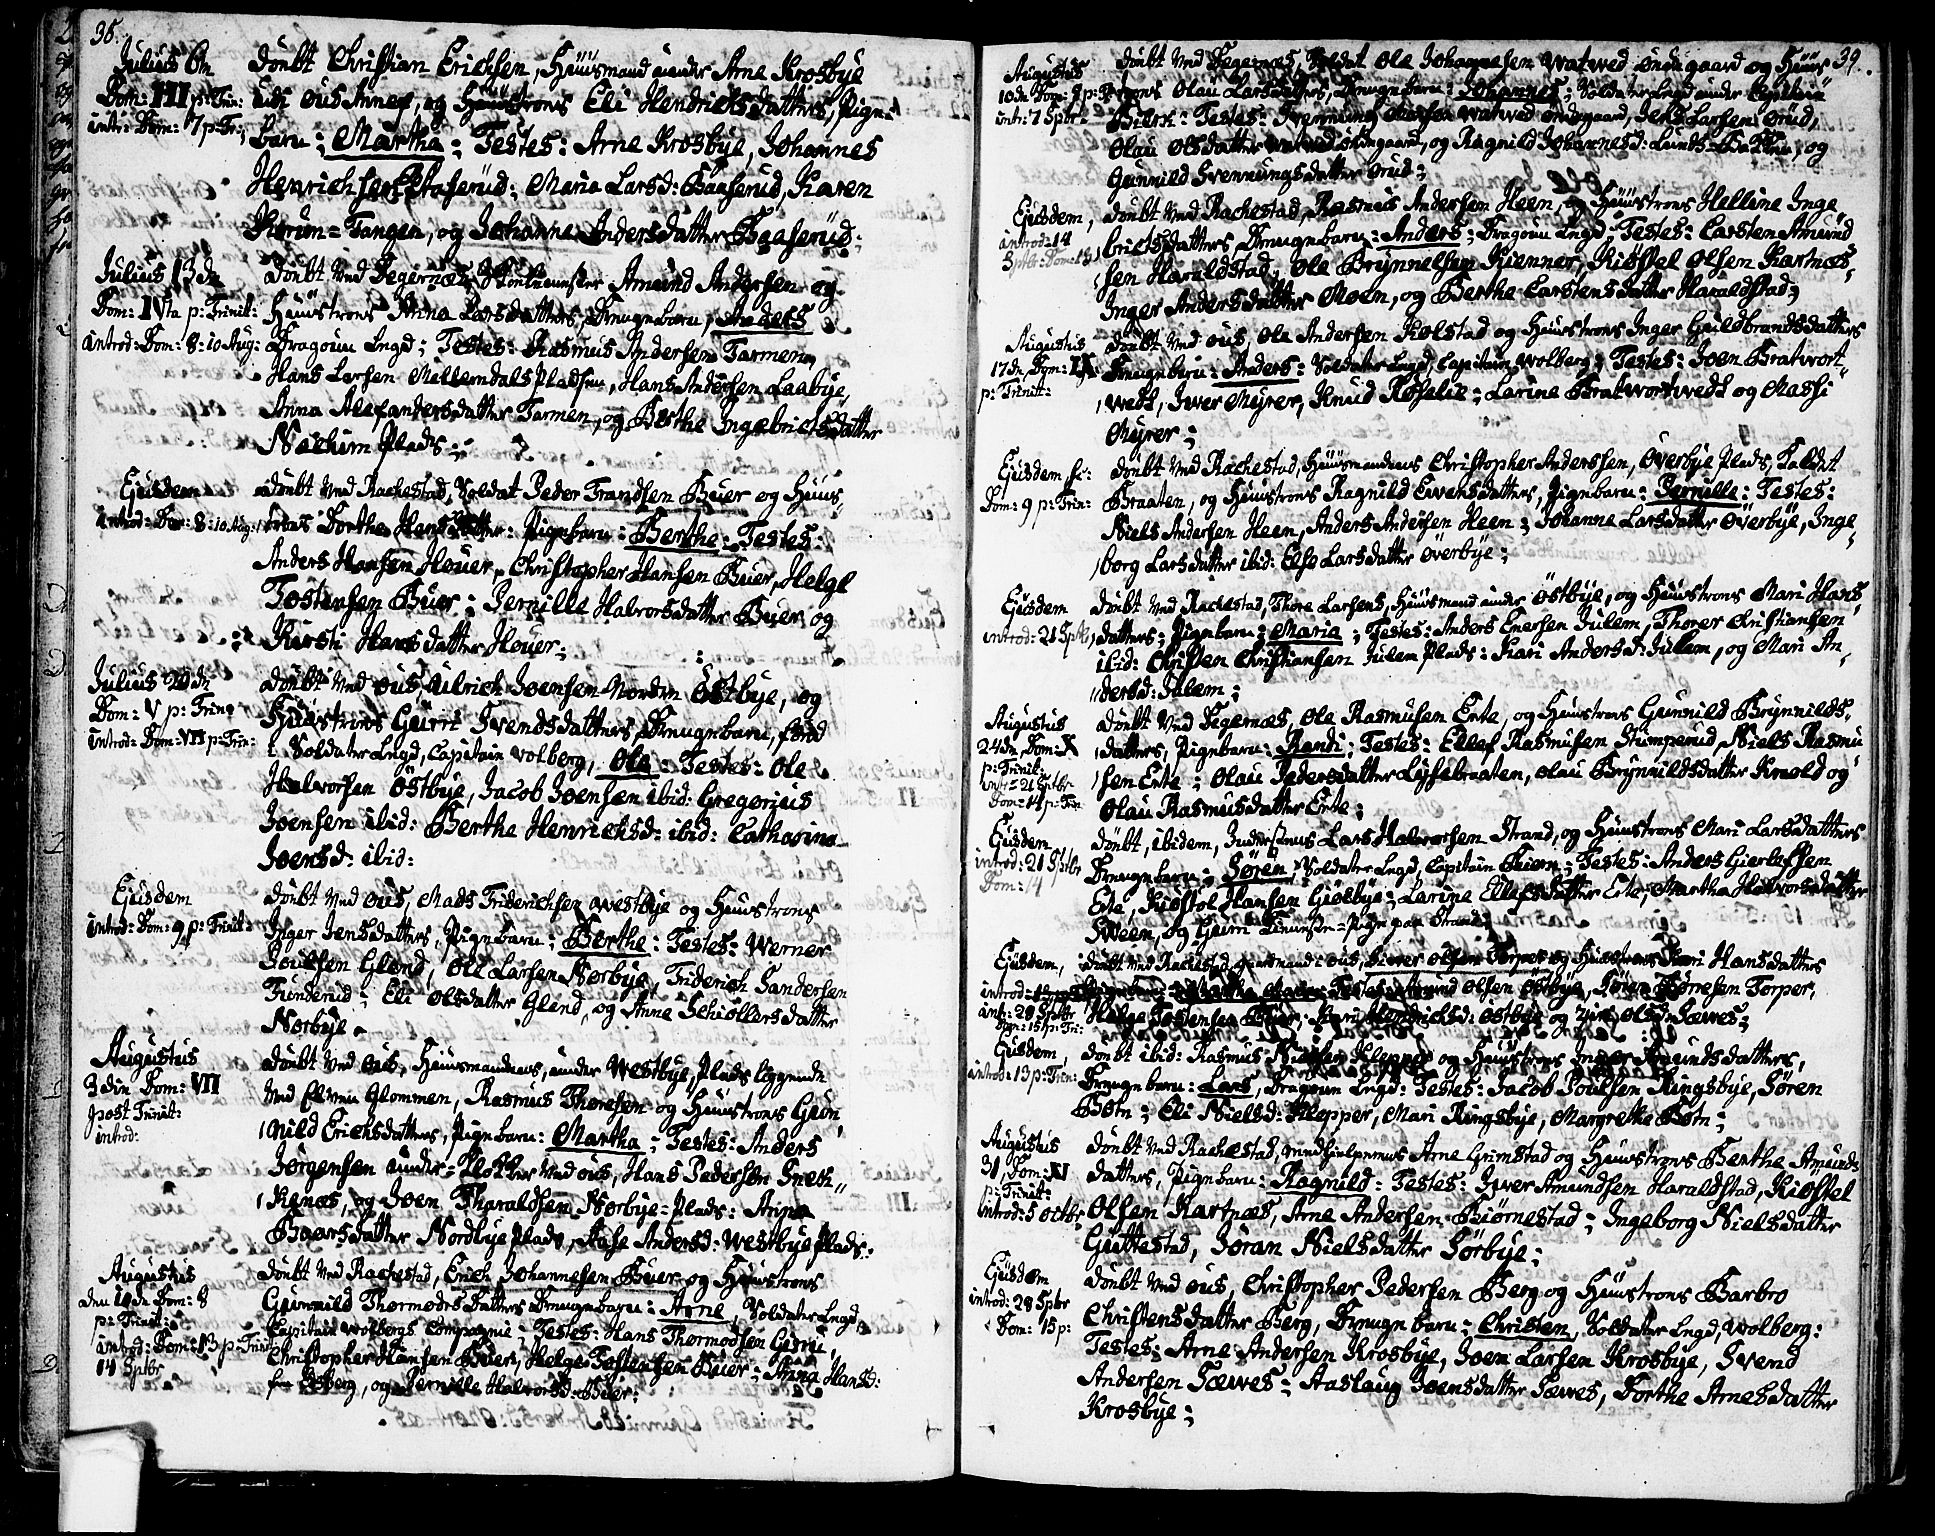 38.
Julius 6te
Dom: III p: Trin:
intr: Dom: 7 p: Tr:
döubt Christian Erichsen, Huusmand under Arne Krosbye
udi öus Annex, og Huustroes Eli Hendrichsdatters, Pige-
barn; Martha; Testes: Arne Krosbye, Johannes
Henrichsen Baaserüd; Maria Larsd: Baaserüd, Karen
Korum=Tangen, og Johanne Andersdatter Baaserüd;
Julius 13de
Dom: IVta p: Trinit:
introd: Dom: 8: 10 Aug:
döubt ved Tegernæs, Amünd Andersen og
Huustroes Anna Larsdatters, Drengebarn, Anders
Dragoun Lægd; Testes: Rasmus Andersen Tarmen,
Hans Larsen Mellemdals Pladsen, Hans Andersen Laabye,
Anna Alexandersdatter Tarmen, og Berthe Ingebrictsdatter
Nachim Plads;
Ejusdem
introd: Dom: 8: 10 Aug:
döubt ved Rachestad, Soldat Peder Frandsen Buer og Huus-
troes Dorthe Hansdatter: Pigebarn: Berthe: Testes:
Anders Hansen Houer, Christopher Hansen Buer, Helge
Tostensen Buer; Pernille Halvorsdatter Buer og
Kirsti Hansdatter Houer;
Julius 20de
Dom: V p: Trin:
introd: Dom: VII p: Trin:
döubt ved öus Ulrich Joensen Nordre Östbye, og
Huustroes Guri Svendsdatters Drengebarn, född
i Soldater Lægd, Capitain Volberg, Ole: Testes: Ole
Halvorsen Östbye, Jacob Joensen ibid: Gregorius
Joensen ibid: Berthe Henrichsd: ibid: Catharina
Joensd: ibid:
Ejusdem
introd: Dom: 9 p: Trinit:
döubt ved öus, Mads Friderichsen Westbye og Huustroes
Inger Jensdatters, Pigebarn; Berthe: Testes: Werner
Poulsen Glend, Ole Larsen Norbye, Friderich Sandersen
Funderud; Eli Olsdatter Glend, og Anne Schiøllersdatter
Norbye.
Augustus
3die Dom: VII
post Trinit:
introd:
döubt ved öus, Huusmandens, under Westbye, Plads liggende
ved Elven Glommen, Rasmus Thoresen og Huustroes Gün-
nild Erichsdatters, Pigebarn: Martha; Testes: Anders
Jørgensen under=Klokker ved öus, Hans Pedersen Sneck-
kenæs, og Joen Tharaldsen Norbye=Plads: Anna
Baarsdatter Nordbye Plads, Aase Andersd: Westbye Plads:
Augustus
den 10de Dom: 8
p: Trinit:
introd: Dom: 13 p: Trinit
14 Sptbr
döubt ved Rachestad, Erich Johannesen Buer og Huustroes
Gunnild Thormodsdatters Drengebarn: Arne, Soldater Lægd,
Capitain Wolbergs Compagnie; Testes: Hans Thormodsen
Christopher Hansen Buer, Helge Tostensen Buer; Anna Hansd:
og Pernille Halvorsd: Buer:
39.
Augustus
10de Dom: p:
intr: 7 Sptbr
döubt ved Tegernæs, Soldat Ole Johannesen Watved Ündegaard og Huus-
troes Olau Larsdatters, Drengebarn: Johannes; Soldater Lægd under Capitain
Bierk: Testes: Svennung Olsen Watved Ündegaard, Jens Larsen Ørud,
Olau Olsdatter Watved Ündegaard, og Ragnild Johannesd: Lunds=Bakken, og
Gunnild Svennungsdatter Ørud;
Ejusdem,
introd: 14
Sptbr: Dom: 13
döubt ved Rachestad, Rasmus Andersen Heen, og Huustroes Helline Inge
brictsdatters Drengebarn: Anders; Dragoun Lægd; Testes: Carsten Amund
sen Haraldstad; Ole Brynnelsen Kienner, Kiøstel Olsen Kartnæs-
Inger Andersdatter Moen, og Berthe Carstensdatter Haraldstad;
Augustus
17de Dom: IX
p: Trinit:
döubt ved öus, Ole Andersen Kolstad og Huustroes Inger Guldbrandsdatters
Drengebarn: Anders: Soldater Lægd, Capitain Wolberg; Testes: Joen Bratwort-
wedt, Iwer Myrer, Knud Røhelie; Larine Bratwortwedt og Massi
Myrer;
Ejusdem
Dom: 9 p: Trin:
döubt ved Rachestad, Huusmandens Christopher Anderssen, Överbye Plads, kaldet
Braaten, og Huustroes Ragnild Ewensdatters, Pigebarn: Pernille: Testes:
Niels Andersen Heen, Anders Andersen Heen; Johanne Larsdatter Överbye, Inge-
borg Larsdatter ibid: Else Larsdatter Överbye;
Ejusdem
introd: 21 Sptbr
döubt ved Rachestad, Thore Larsens, Huusmand under Östbye, og Huustroes Mari Hans-
datters: Pigebarn: Maria; Testes: Anders Enersen Julem, Thorer Christiansen
ibid: Christen Christiansen Julem Plads: Kari Andersd: Julem, og Mari An-
dersd: Julem;
Augustus
24de Dom: X
p: Trinit:
intr: 21 Sptbr
Dom: 14 p: Trin
döubt ved Tegernæs, Ole Rasmusen Erte, og Huustroes Gunnild Brynnilds-
datters, Pigebarn: Randi; Testes: Ellef Rasmusen Stumperud, Niels Rasmu
sen Erte; Olau Pedersdatter Lysebraaten, Olau Brynnildsdatter Krold og
Olau Rasmusdatter Erte;
Ejusdem
introd: 21 Sptbr
Dom: 14
döubt, ibidem, Lars Halvorsen Strand, og Huustroes Mari Larsdatters
Drengebarn; Sören, Soldater Lægd, Capitain Biern; Testes: Anders Gierlefsen
Erte, Kiøstol Hansen Giølbye; Larine Ellefsdatter Erte, Martha Halvorsdatter
Sween, og Guri Pige paa Strand;
Ejusdem,
introd:
intr: 28 Sptbr
Dom: 15 p: Tri:
döubt ved Rachestad, Olsen Torper og Huustroes Kari Hansdatters
Testes: Amund Olsen Östbye, Sören Sörensen Torper,
Helge Tostensen Buer; Kari Hendrichsd: Östbye og Olsd: Sæwes;
Ejusdem,
introd: 13 p: Trin:
döubt ibid: Rasmus Nielsen Klepper og Huustroes Inger Amundsdatters,
Drengebarn: Lars, Dragoun Lægd: Testes: Jacob Poulsen Ringsbye, Sören
Botn; Eli Nielsd: Klepper, Mari Ringsbye, Margrethe Botn;
Augustus
31, Dom: XI
p: Trinit:
introd: 5 octbr
döubt ved Rachestad, Medhjelperens Arne Grimstad og Huustroes Berthe Amunds
datters, Pigebarn: Ragnild: Testes: Iwer Amundsen Haraldstad, Kiøstel
Olsen Kartnæs, Arne Andersen Biørnestad; Ingeborg Nielsdatter
Guttestad, Joran Nielsdatter Sörbye;
Ejusdem
introd: 28 Sptbr
Dom: 15 p:
döubt ved öus, Christopher Pedersen Berg og Huustroes Barbro
Christensdatter Berg, Drengebarn; Christen, Soldater Lægd, Wolberg:
Testes: Arne Andersen Krosbye, Joen Larsen Krosbye, Svend
Andersen Sæwes; Aaslaug Joensdatter Sæwes, Dorthe Arnesdatter
Krosbye;